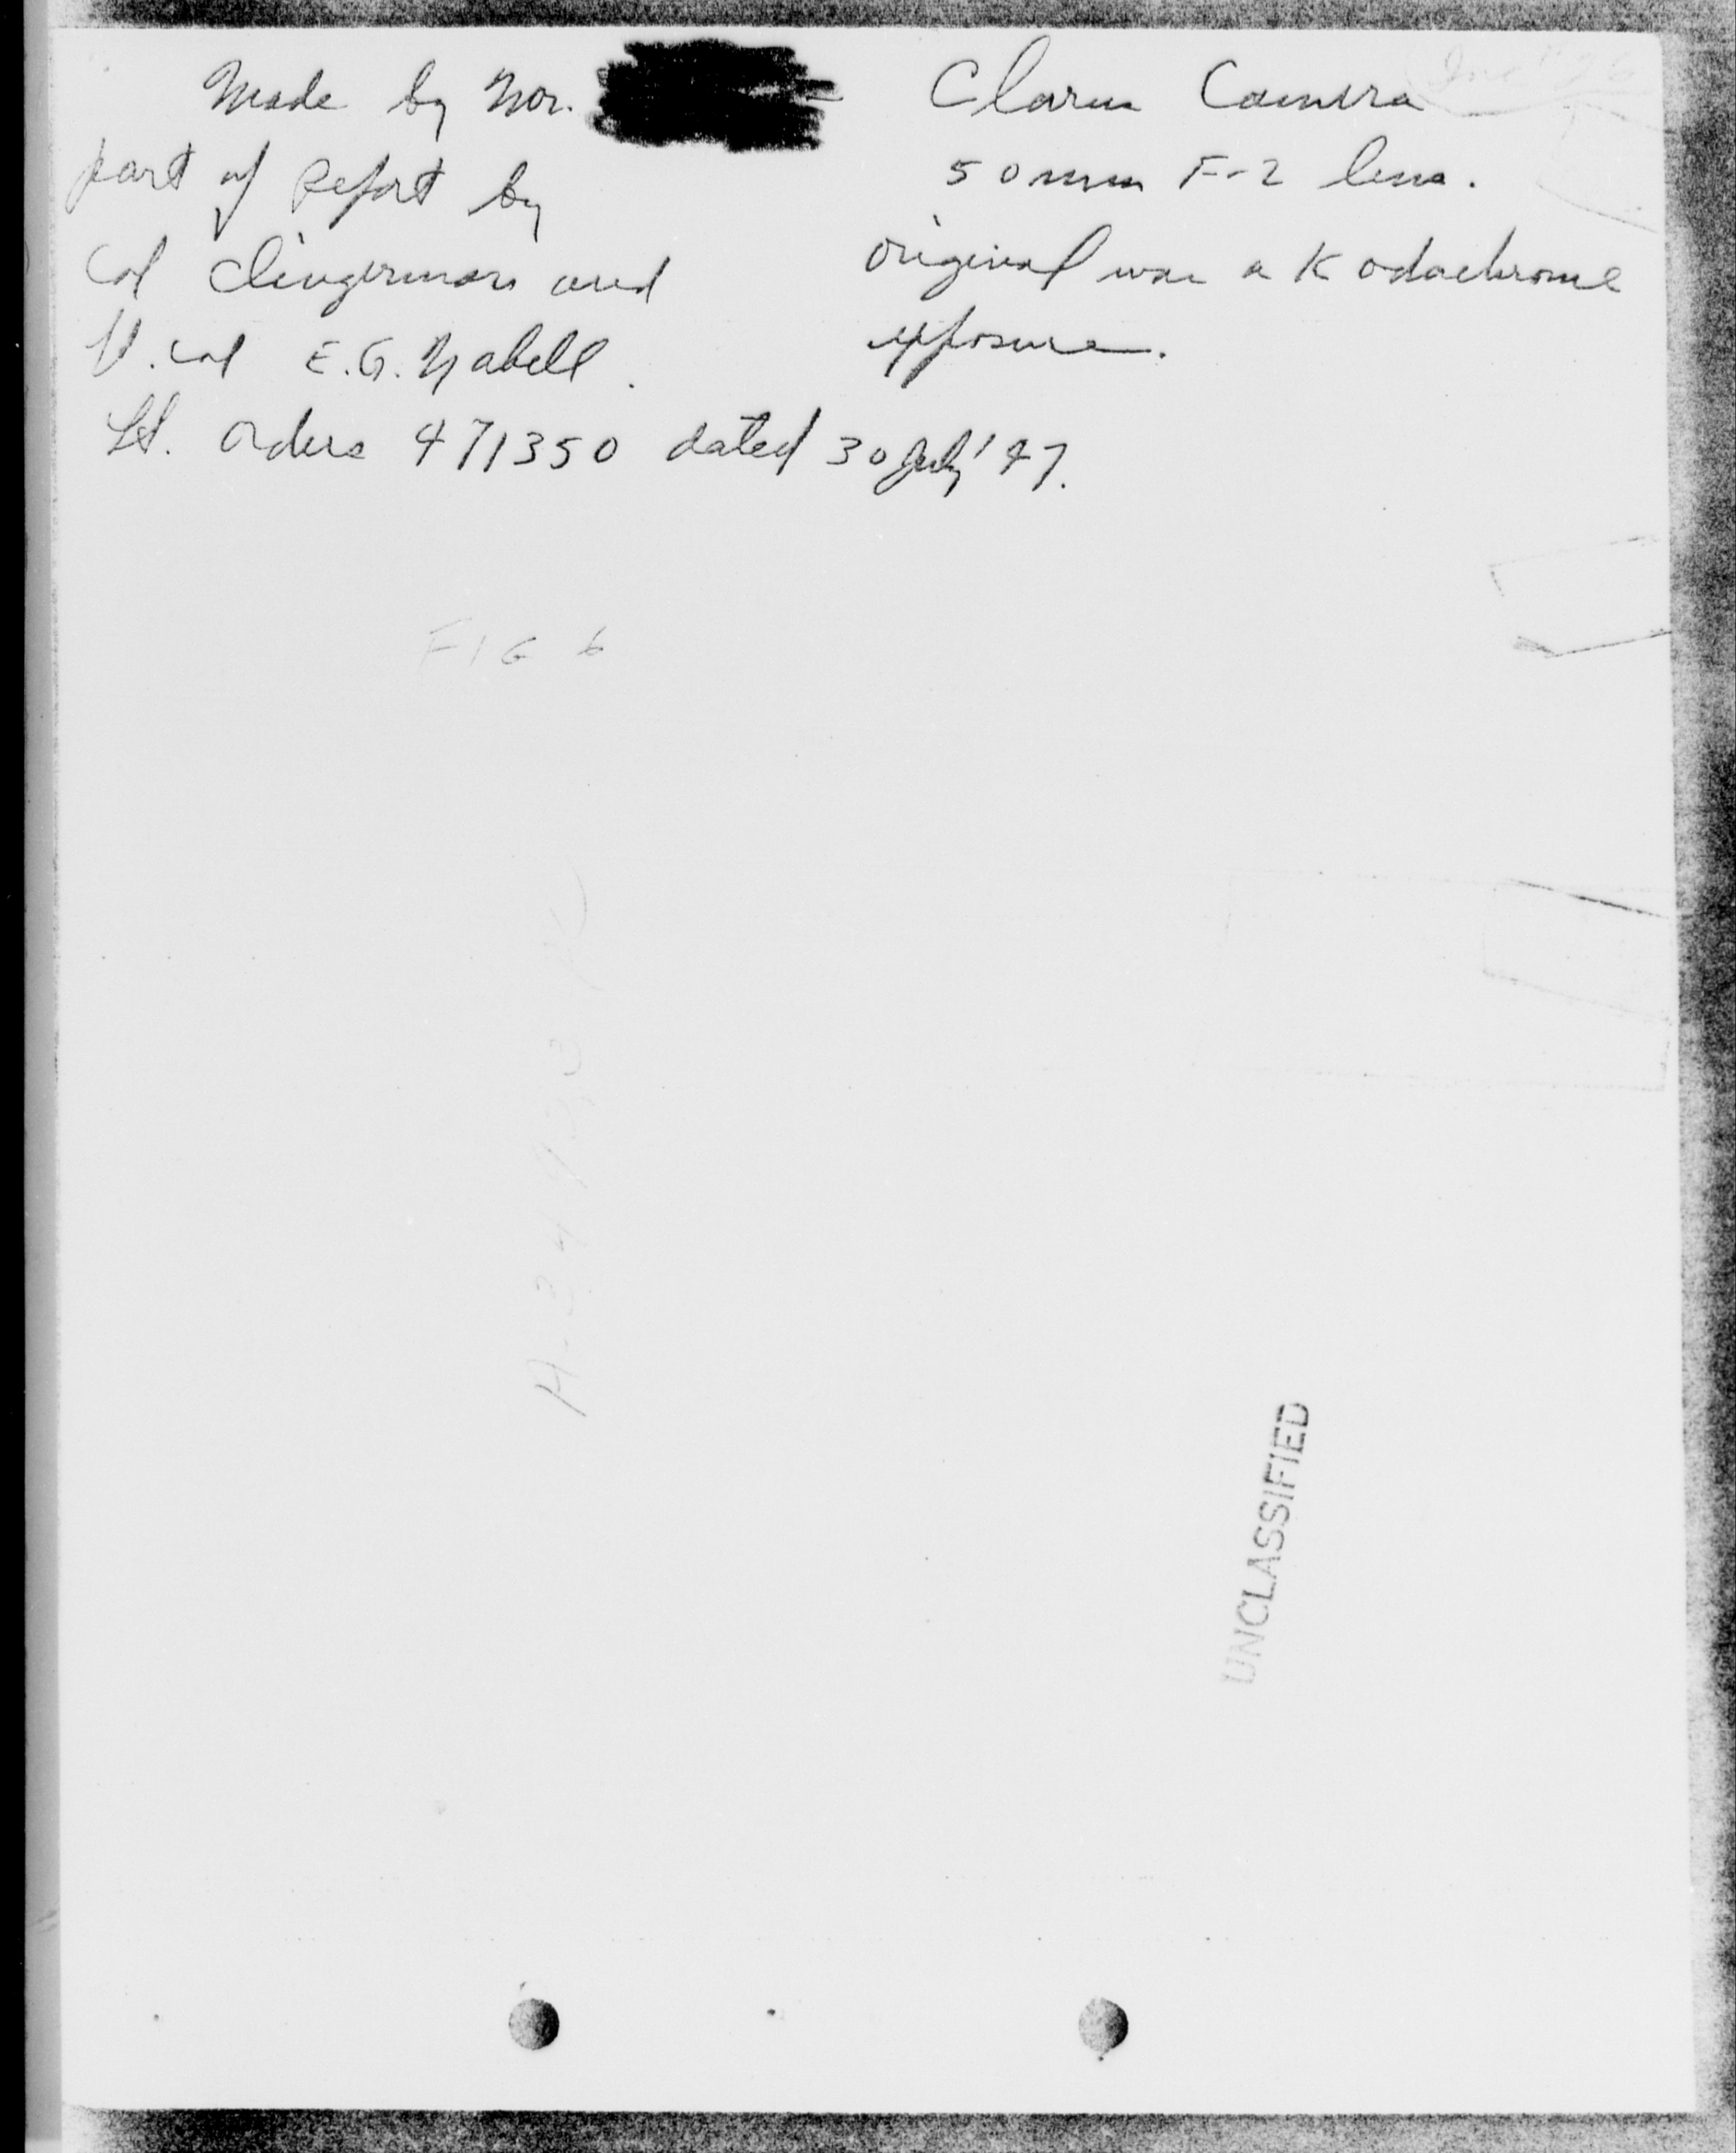 Made by Mr.
part of Report by
Col Clingerman and
Lt. Col E.G. Nabell.
Lt. orders 471350 dated 30 July '47.
Clarus Camera
50 mm F-2 lens.
original was a Kodachrome
exposure.
FIG 6
UNCLASSIFIED